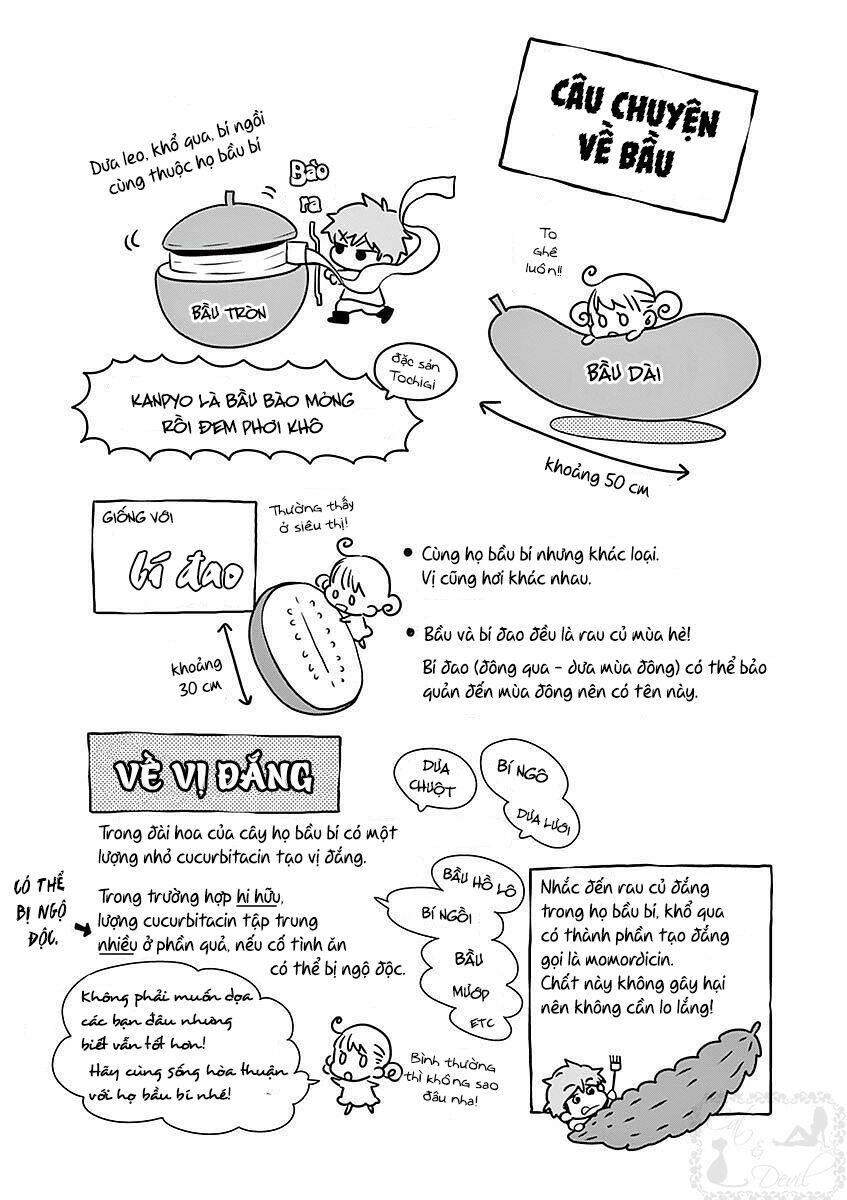 CÂU CHUYỆN
VỀ BẦU
Dưa leo, khổ qua, bí ngồi
cùng thuộc họ bầu bí
Bào
ra
BẦU TRÒN
To
ghê
luôn!!
BẦU DÀI
khoảng 50 cm
đặc sản
Tochigi
KANPYO LÀ BẦU BÀO MỎNG
RỒI ĐEM PHƠI KHÔ
GIỐNG VỚI
bí đao
Thường thấy
ở siêu thị!
khoảng
30 cm
• Cùng họ bầu bí nhưng khác loại.
Vị cũng hơi khác nhau.
• Bầu và bí đao đều là rau củ mùa hè!
Bí đao (đông qua - dưa mùa đông) có thể bảo
quản đến mùa đông nên có tên này.
VỀ VỊ ĐẮNG
Trong đài hoa của cây họ bầu bí có một
lượng nhỏ cucurbitacin tạo vị đắng.
Trong trường hợp hi hữu,
lượng cucurbitacin tập trung
nhiều ở phần quả, nếu cố tình ăn
có thể bị ngộ độc.
CÓ THỂ
BỊ NGỘ
ĐỘC.
DƯA
CHUỘT
BÍ NGÔ
DƯA LƯỚI
BẦU HỒ LÔ
BÍ NGỒI
BẦU
MƯỚP
ETC
Không phải muốn dọa
các bạn đâu nhưng
biết vẫn tốt hơn!
Hãy cùng sống hòa thuận
với họ bầu bí nhé!
Bình thường
thì không sao
đâu nha!
Nhắc đến rau củ đắng
trong họ bầu bí, khổ qua
có thành phần tạo đắng
gọi là momordicin.
Chất này không gây hại
nên không cần lo lắng!
Cat
&
Devil